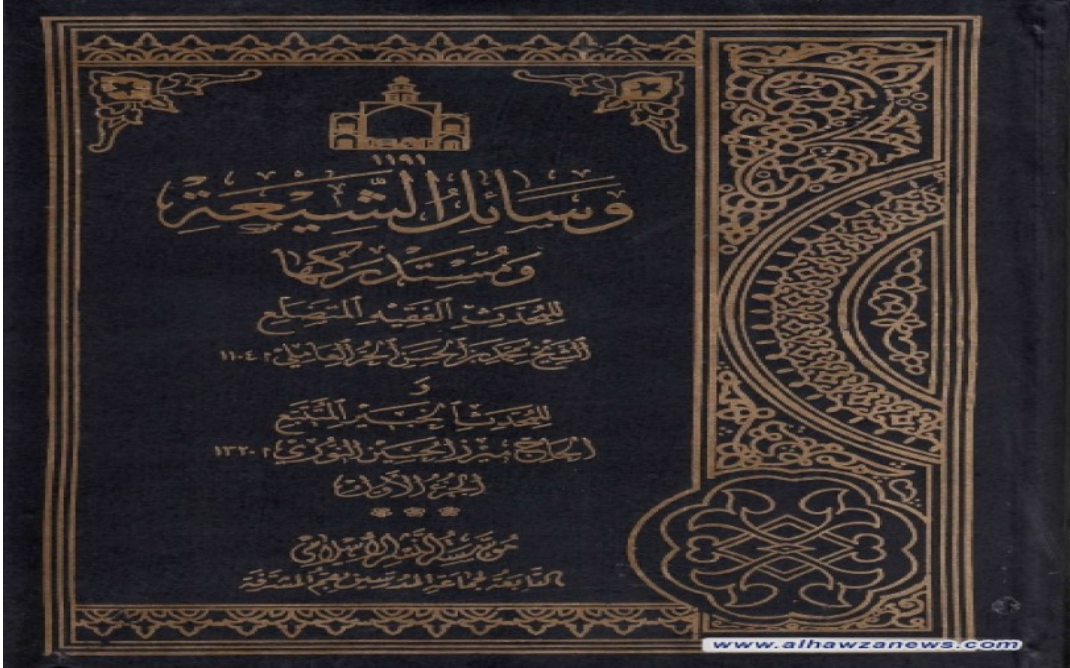 ١١٩١
وَسَائِلُ الشِّيعَةِ
وَمُسْتَدْرَكُهَا
للمحدث الفقيه المتضلع
الشيخ محمد بن الحسن الحر العاملي م ١١٠٤
و
للمحدث الخبير المتتبع
الحاج ميرزا حسين النوري م ١٣٢٠
الجزء الأول
مؤسسة النشر الإسلامي
التابعة لجماعة المدرسين بقم المشرفة
www.alhawzanews.com